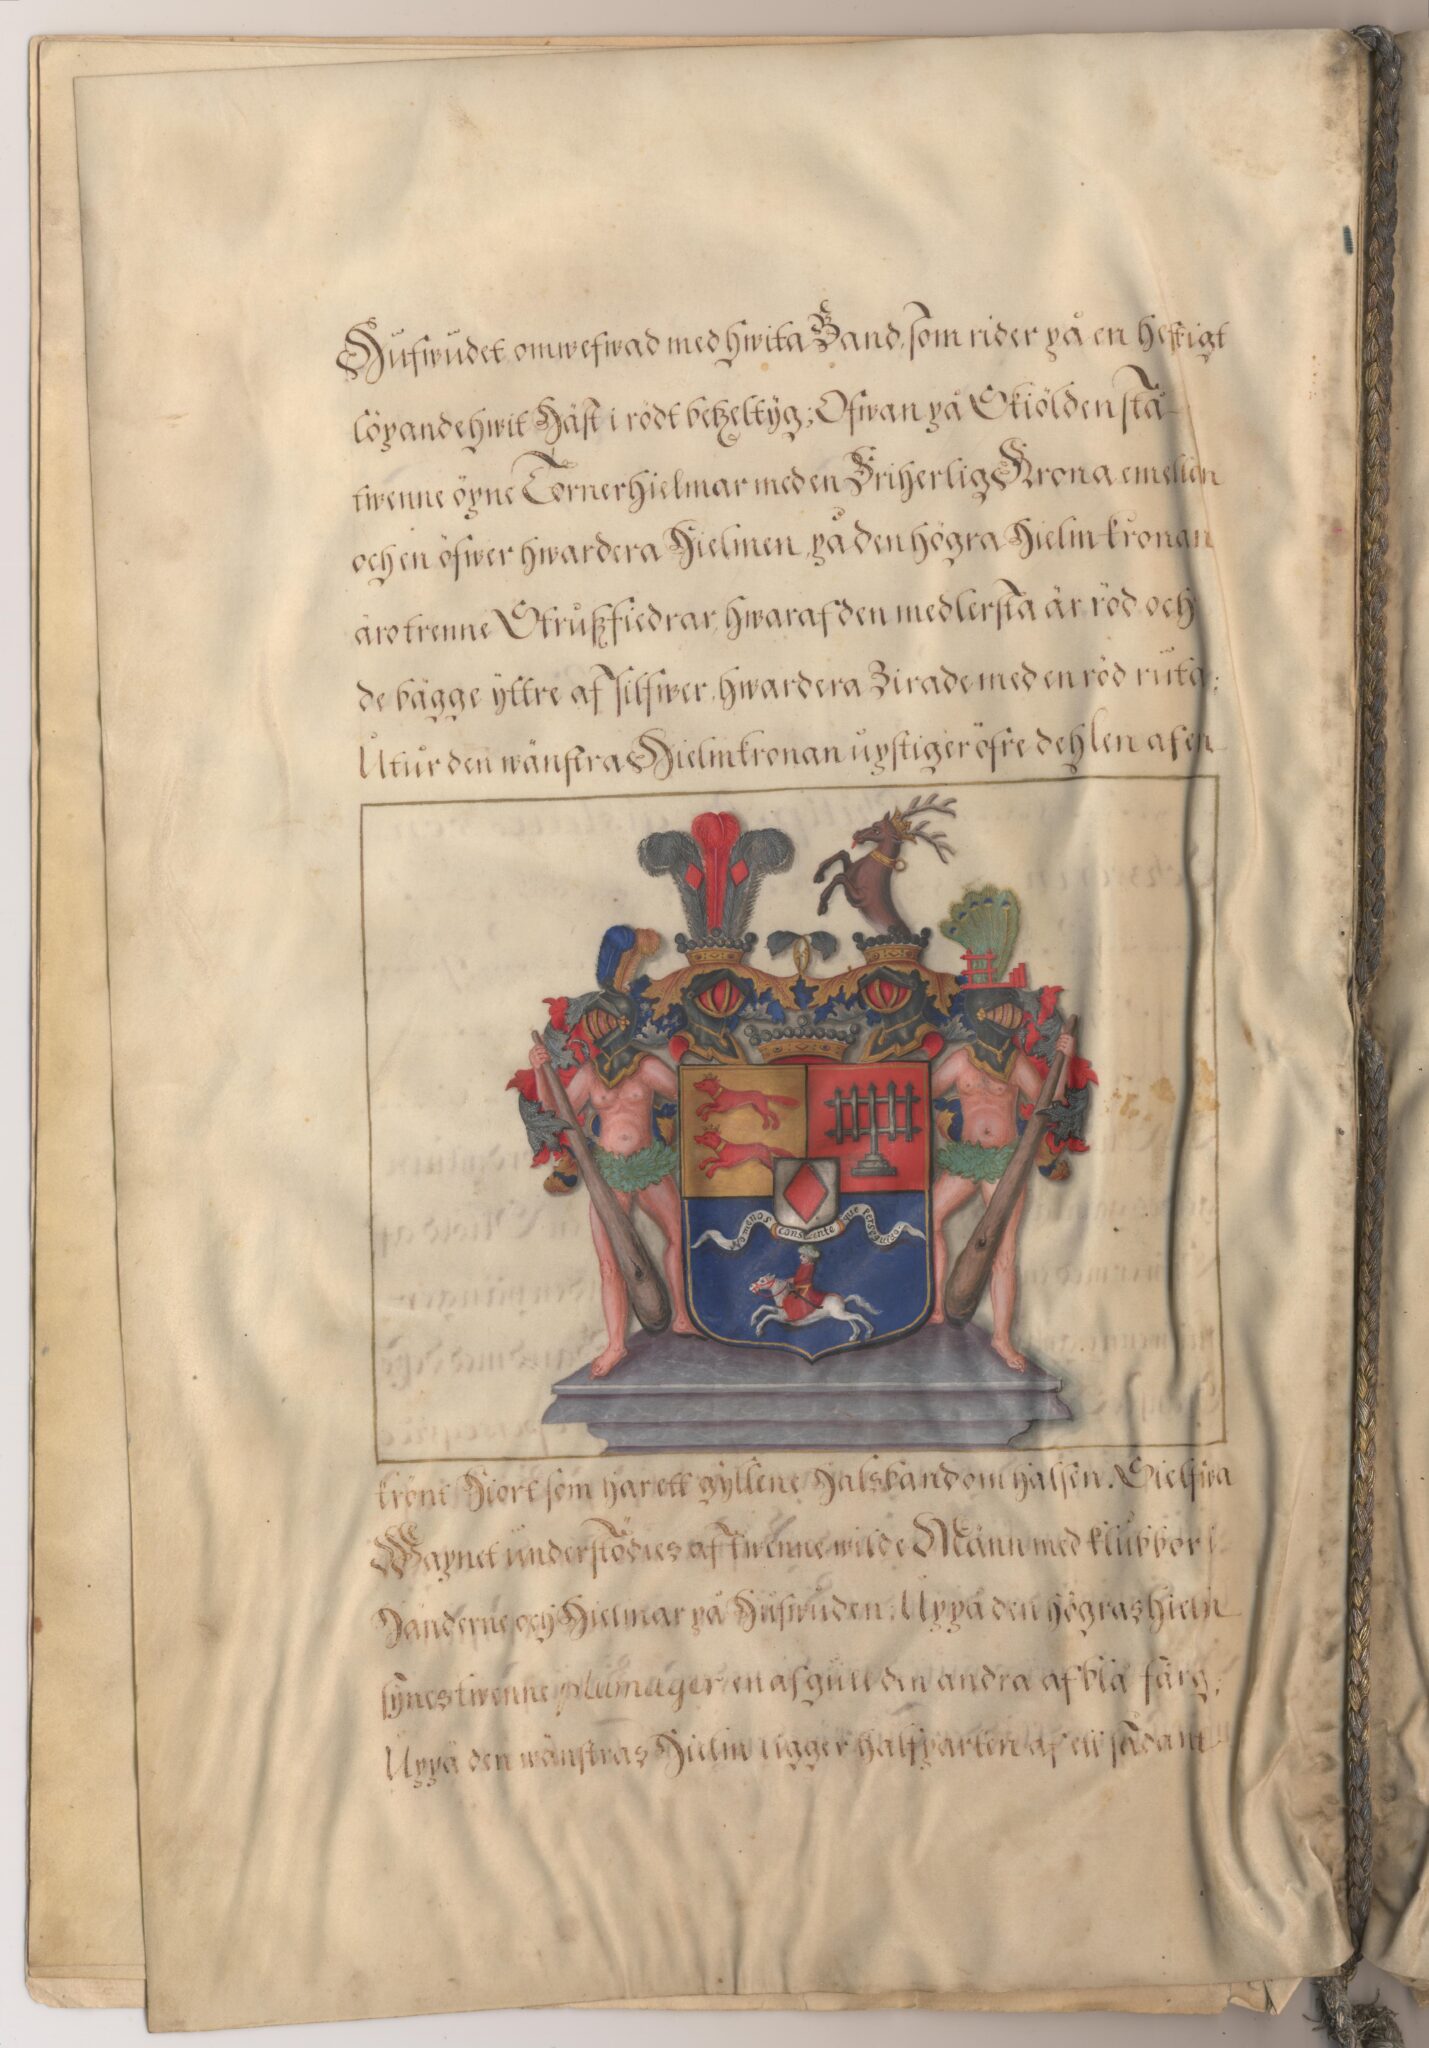 Hufwudet omwefwad med hwita Band, som rider på en heftigt
löpande hwit Häst i rödt betzeltyg; Ofwan på Skiölden stå
twenne öpne Tornerhielmar med en Friherlig Krona emellan
och en öfwer hwardera Hielmen, på den högra Hielmkronan
äro trenne Strußfiedrar, hwaraf den medlersta är röd och
de bägge yttre af silfwer, hwardera Zirade med en röd ruta;
Utur den wänstra Hielmkronan upstiger öfre dehlen af en
No menos
constante
que
krönt Hiort som har ett gyllene Halsband om halsen. Sielfwa
Wapnet understödies af twenne wilde Männ med klubbor i
Händerne och Hielmar på Hufwuden. Uppå den högras Hielm
synes twenne plumager, en af gull den andra af blå färg;
Uppå den wänstras Hielm ligger halfparten af ett sådant